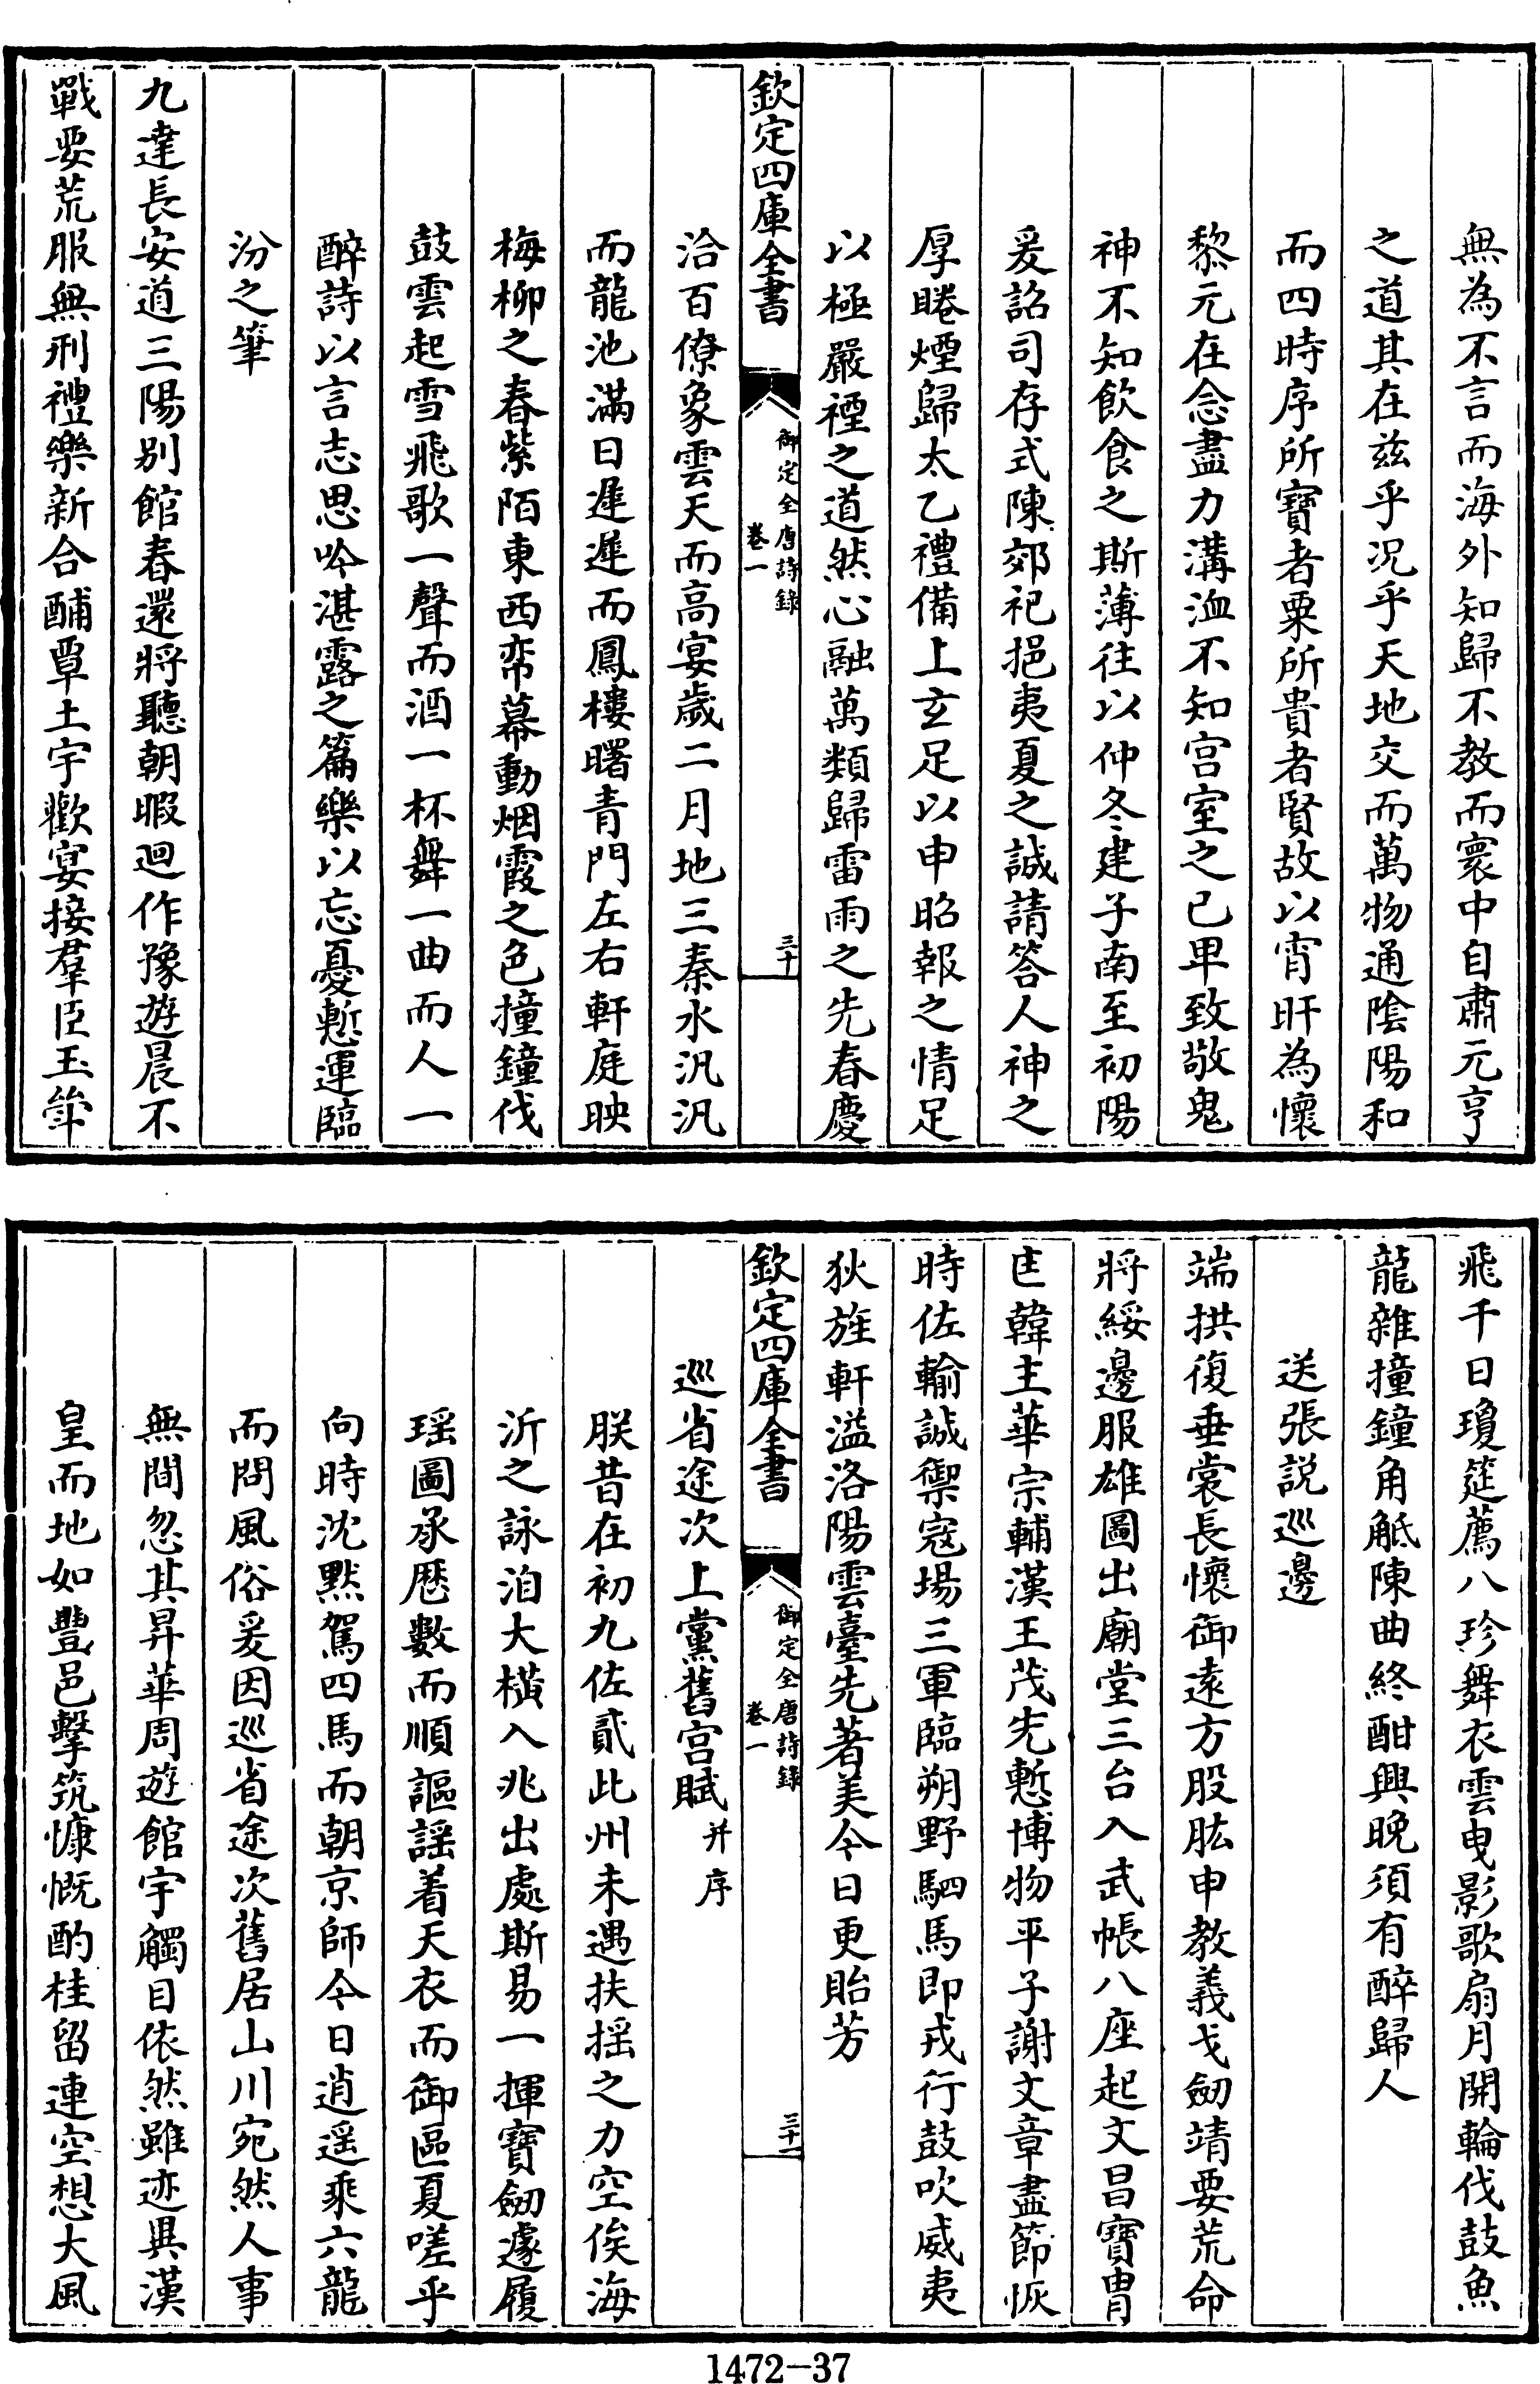 無為不言而海外知歸不教而寰中自肅元亨
之道其在茲乎况乎天地交而萬物通陰陽和
而四時序所寶者粟所貴者賢故以宵旰為懷
黎元在念盡力溝洫不知宫室之已卑致敬鬼
神不知飲食之斯薄往以仲冬建子南至初陽
爰詔司存式陳郊祀挹夷夏之誠請答人神之
厚睠煙歸太乙禮備上玄足以申昭報之情足
以極嚴禋之道然心融萬類歸雷雨之先春慶
欽定四庫全書
御定全唐詩錄
卷一
三十
洽百僚象雲天而高宴歲二月地三秦水汎汎
而龍池滿日遲遲而鳳樓曙青門左右軒庭映
梅柳之春紫陌東西帟幕動烟霞之色撞鐘伐
鼓雲起雪飛歌一聲而酒一杯舞一曲而人一
醉詩以言志思吟湛露之篇樂以忘憂慙運臨
汾之筆
九達長安道三陽别館春還將聽朝暇迴作豫遊晨不
戰要荒服無刑禮樂新合酺覃土宇歡宴接羣臣玉斝
飛千日瓊筵薦八珍舞衣雲曳影歌扇月開輪伐鼓魚
龍雜撞鐘角觝陳曲終酣興晚須有醉歸人
送張説巡邊
端拱復垂裳長懷御遠方股肱申教義戈劒靖要荒命
將綏邊服雄圖出廟堂三台入武帳八座起文昌寶胄
匡韓主華宗輔漢王茂先慙博物平子謝文章盡節恢
時佐輸誠禦寇場三軍臨朔野駟馬即戎行鼓吹威夷
狄旌軒溢洛陽雲臺先著美今日更貽芳
欽定四庫全書
御定全唐詩錄
卷一
三十一
巡省途次上黨舊宫賦并序
朕昔在初九佐貳此州未遇扶摇之力空俟海
沂之詠洎大橫入兆出處斯易一揮寶劒遽履
瑶圖承厯數而順謳謡着天衣而御區夏嗟乎
向時沈黙駕四馬而朝京師今日逍遥乘六龍
而問風俗爰因巡省途次舊居山川宛然人事
無間忽其昇華周遊館宇觸目依然雖迹異漢
皇而地如豐邑擊筑慷慨酌桂留連空想大風
1472—37